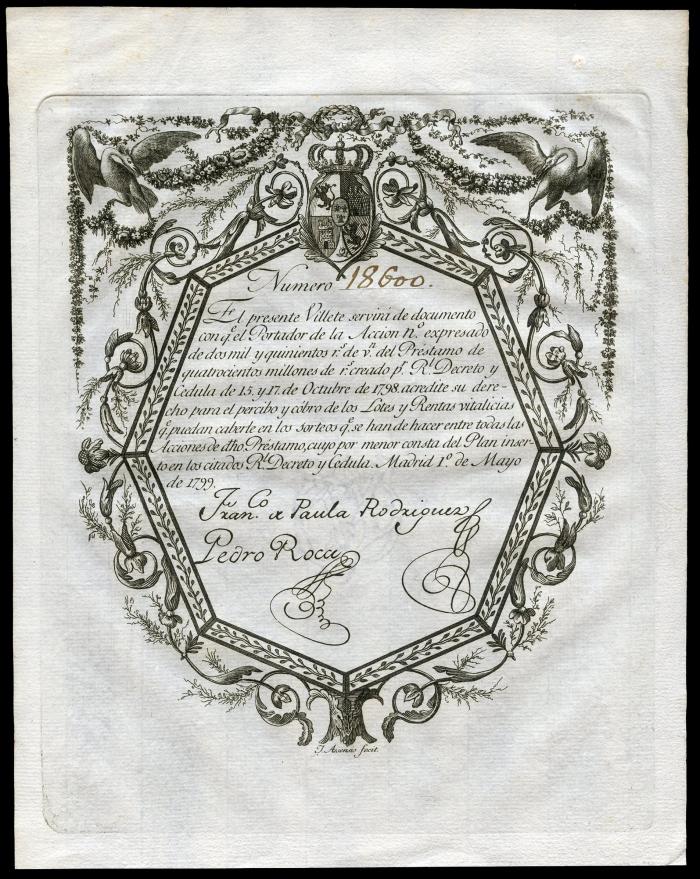 Numero 18600.
El presente Villete servirá de documento
con q.e el Portador de la Accion n.o expresado
de dos mil y quinientos r.s de v.n del Préstamo de
quatrocientos millones de r.s creado p.r R.l Decreto y
Cedula de 15, y 17, de Octubre de 1798, acredite su dere-
cho para el percibo y cobro de los Lotes y Rentas vitalicias
q.e puedan caberle en los sorteos q.e se han de hacer entre todas las
Acciones de dho Préstamo, cuyo por menor consta del Plan inser-
to en los citados R.l Decreto y Cedula. Madrid 1.o de Mayo
de 1799.
Fran.co de Paula Rodriguez
Pedro Roca
J. Assensio fecit.